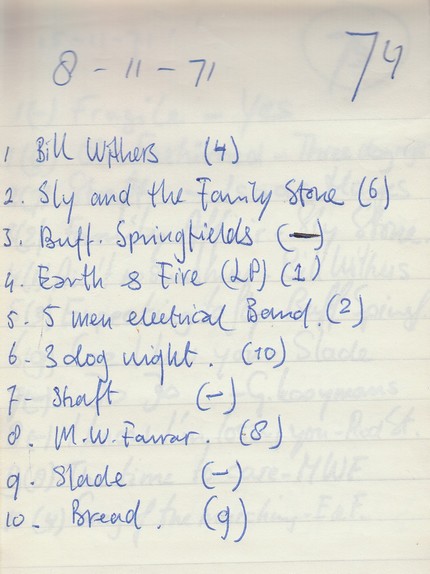 8-11-71
74
1 Bill Withers (4)
2. Sly and the Family Stone (6)
3. Buff. Springfields (-)
4. Earth & Fire (LP) (1)
5. 5 men electrical Band. (2)
6- 3 dog night. (10)
7- Shaft (-)
8. M.W. Farrar. (8)
9. Slade (-)
10- Bread. (9)